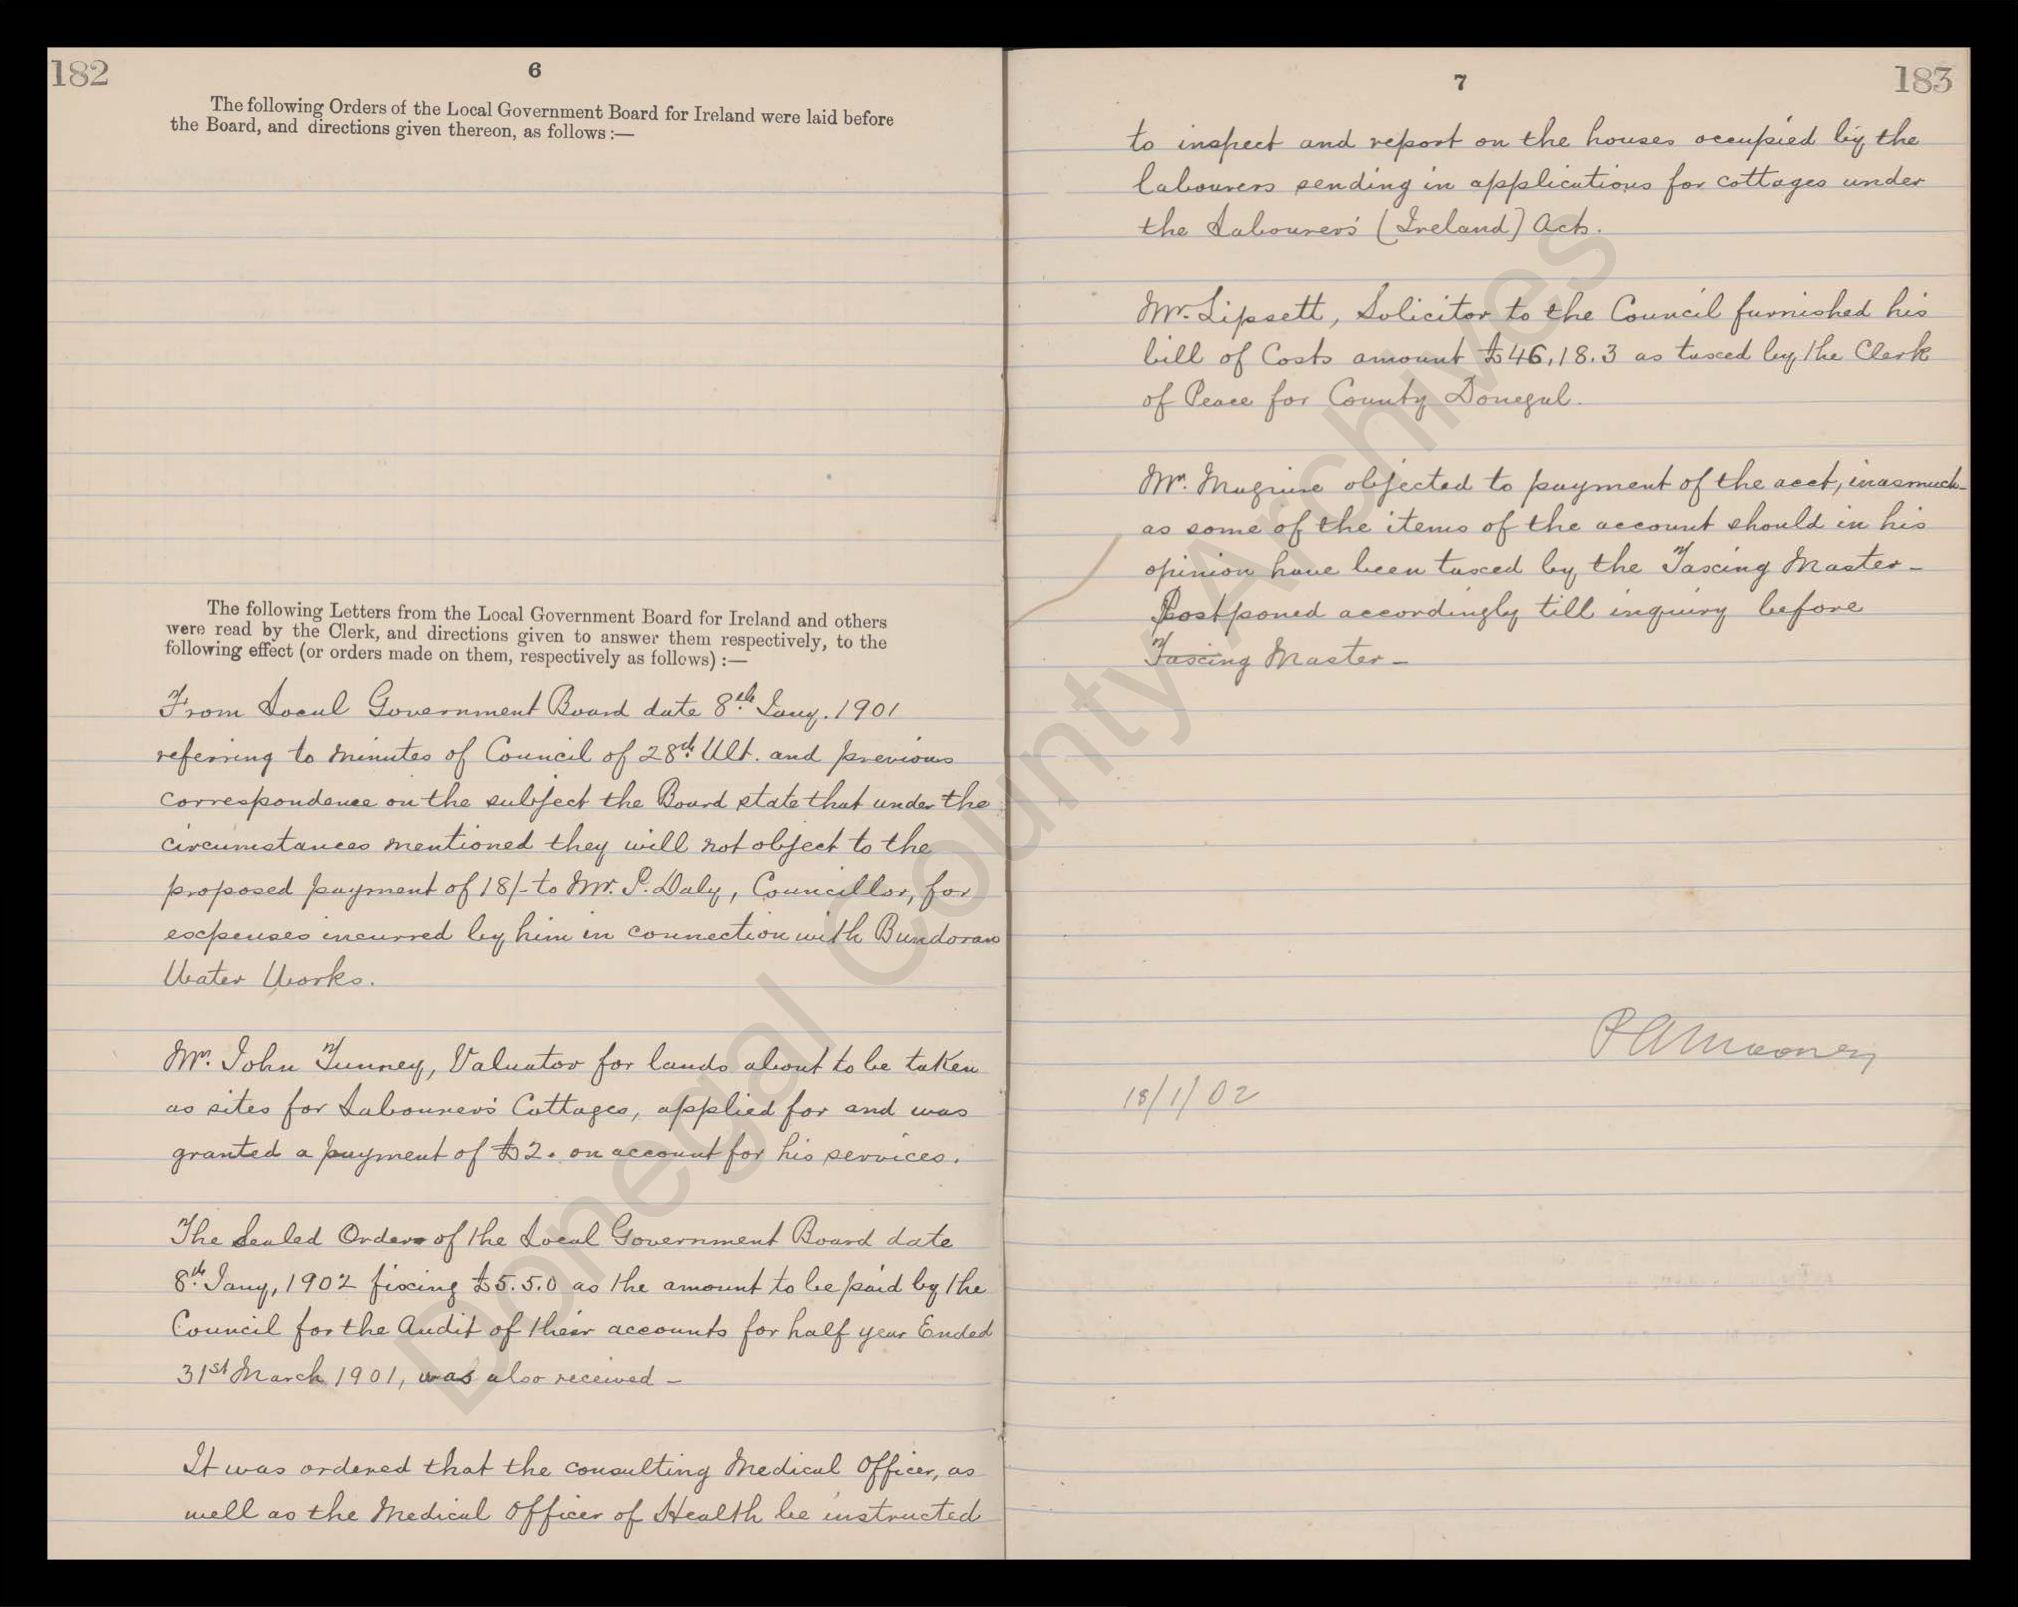 182
6
The following Orders of the Local Government Board for Ireland were laid before
the Board, and directions given thereon, as follows :—
The following Letters from the Local Government Board for Ireland and others
were read by the Clerk, and directions given to answer them respectively, to the
following effect (or orders made on them, respectively as follows) :—
From Local Government Board date 8th Jany. 1901
referring to minutes of Council of 28th Ult. and previous
correspondence on the subject the Board state that under the
circumstances mentioned they will not object to the
proposed payment of 18/- to Mr. P. Daly, Councillor, for
expenses incurred by him in connection with Bundoran
Water Works.
Mr. John Tunney, Valuator for lands about to be taken
as sites for Labourers' Cottages, applied for and was
granted a payment of £2. on account for his services.
The Sealed Order of the Local Government Board date
8th Jany, 1902 fixing £5.5.0 as the amount to be paid by the
Council for the Audit of their accounts for half year Ended
31st March 1901, was also received -
It was ordered that the consulting Medical Officer, as
well as the Medical Officer of Health be instructed
7
183
to inspect and report on the houses occupied by the
labourers sending in applications for cottages under
the Labourers' (Ireland) Acts.
Mr. Lipsett, Solicitor to the Council furnished his
bill of Costs amount £46.18.3 as taxed by the Clerk
of Peace for County Donegal.
Mr. Maguire objected to payment of the acct, inasmuch-
as some of the items of the account should in his
opinion have been taxed by the Taxing Master -
Postponed accordingly till inquiry before
Taxing Master -
P A Mooney
18/1/02
Donegal County Archives